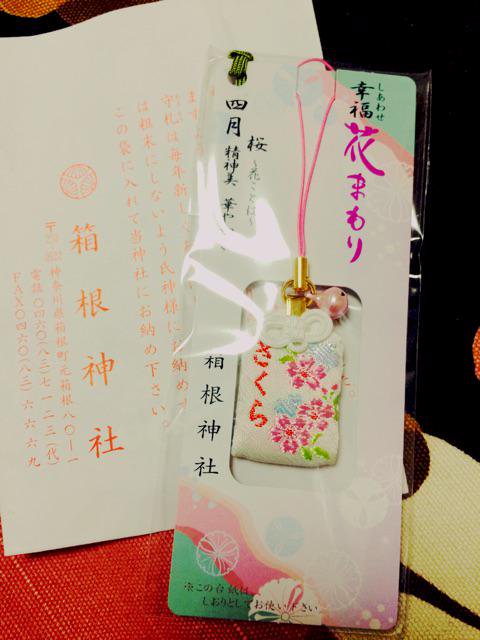 幸福
しあわせ
花まもり
四月
桜
～花ことば～
精神美
箱根神社
さくら
※この台紙は
しおりとしてお使い下さい
守札は毎年新しく
は粗末にしないよう氏神様に
この袋に入れて当神社にお納め下さい。
箱根神社
神奈川県箱根町元箱根八〇―一
電話〇四六〇(八三)七一二三(代)
FAX〇四六〇(八三)六六六九